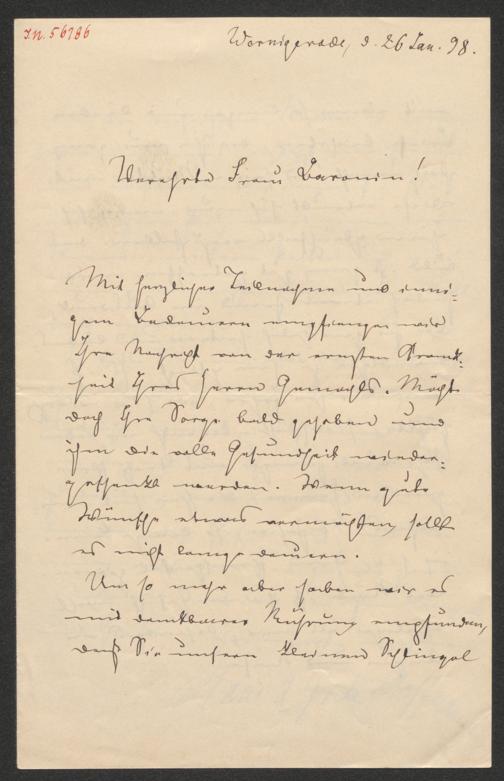 J.N. 56786
Wernigerode, d. 26 Jan. 98.
Verehrte Frau Baronin!
Mit herzlicher Teilnahme und inni-
gem Bedauern empfingen wir
Ihre Nachricht von der ernsten Krank-
heit Ihres Herrn Gemahls. Möcht
doch Ihre Sorge bald gehoben und
ihm die volle Gesundheit wieder-
geschenkt werden. Wenn gute
Wünsche etwas vermöchten, sollt
es nicht lange dauern.
Um so mehr aber haben wir es
mit dankbarer Rührung empfunden,
daß Sie unsern kleinen Schlingel